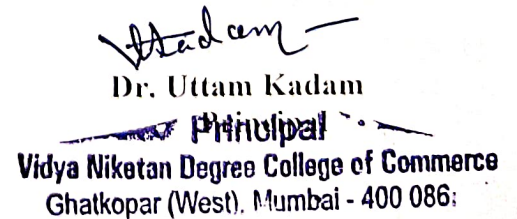 Uttadam
Dr. Uttam Kadam
Principal
Vidya Niketan Degree College of Commerce
Ghatkopar (West), Mumbai - 400 086.